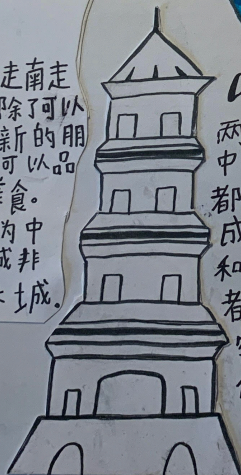 走南走
除了可以
新的朋
可以品
食。
为中
成非
土城.
两
中
都
成
和
者